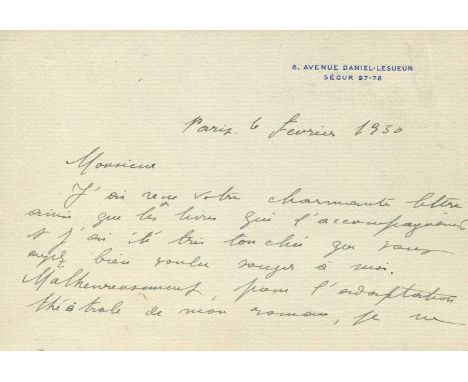 8, AVENUE DANIEL-LESUEUR
SÉGUR 97-76
Paris, 6 fevrier 1930
Monsieur
J'ai reçu votre charmante lettre
ainsi que les livres qui l'accompagnaient
et j'ai été très touchée que vous
ayez bien voulu songer à moi.
Malheureusement, pour l'adaptation
théâtrale de mon roman, je ne